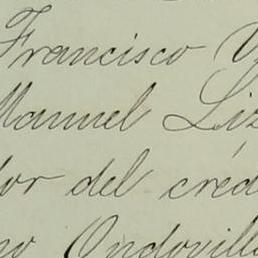 Francisco V
Manuel Liz
dor del créd
no Ondovilla